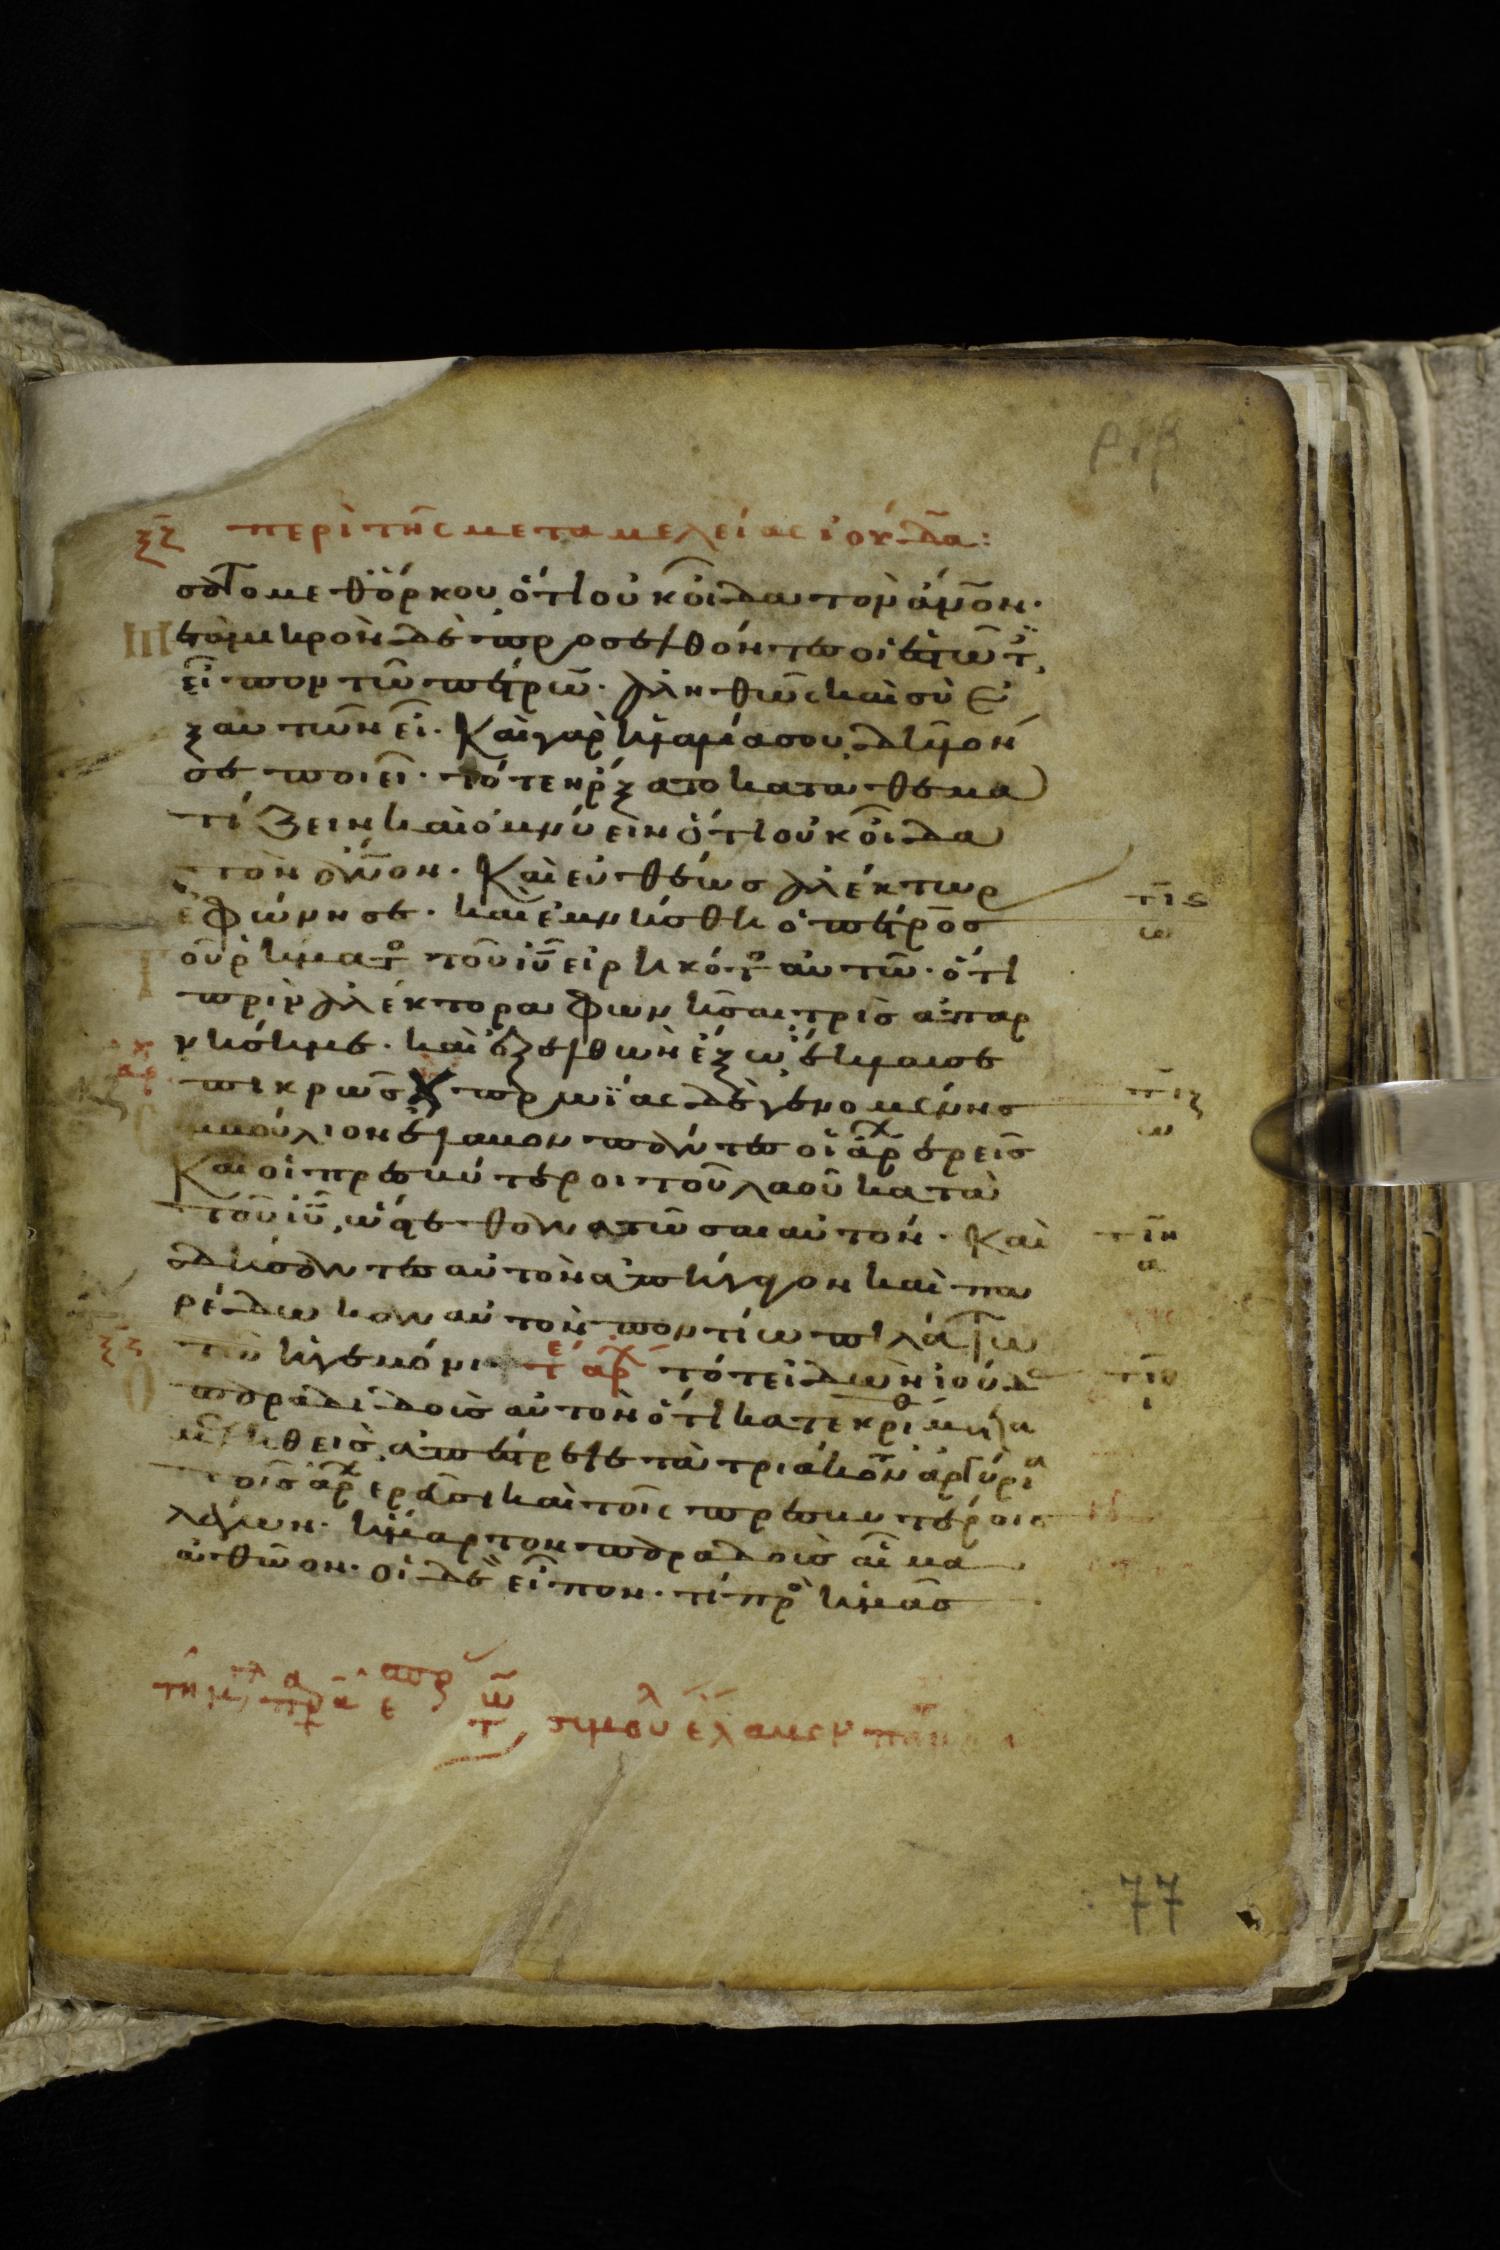 ριβ
ξζ περὶ τῆς μεταμελείας ἰούδα:
σατο μεθ ὅρκου, ὅτι οὐκ οἶδα τὸν ἄνον·
μετὰ μικρὸν δὲ προσελθόντες οἱ ἑστῶτ,
εἶπον τῶ πέτρω· ἀληθῶς καὶ σὺ ἐ
ξ αὐτῶν εἶ· Καὶ γὰρ ἡ λαλιά σου δῆλόν
σε ποιεῖ· τότε ἤρξατο καταθεμα
τίζειν καὶ ὀμνύειν ὅτι οὐκ οἶδα
τὸν ἄνον· Καὶ εὐθέως ἀλέκτωρ
ἐφώνησε· καὶ ἐμνήσθη ὁ πέτρος τις ω
οῦ ῥήματο τοῦ ιυ εἰρηκότο αὐτῶ· ὅτι
πρὶν ἀλέκτορα φωνῆσαι τρὶς ἀπαρ
νήσῃ με· καὶ ἐξελθὼν ἔξω, ἔκλαυσε
πικρῶς πρωΐας δὲ γενομένης τιζ ω
συμβούλιον ἔλαβον πάντες οἱ ἀρχερεῖς
Καὶ οἱ πρεσβύτεροι τοῦ λαοῦ κατὰ
τοῦ ιυ, ὥστε θανατῶσαι αὐτόν· Καὶ τιη α
δήσαντες αὐτὸν ἀπήγαγον καὶ πα
ρέδωκαν αὐτὸν ποντίω πιλάτω
τῶ ἡγεμόνι· τ ε αρχ τότε ἰδὼν ἰούδα τιθ ι
ὁ παραδιδοὺς αὐτὸν ὅτι κατεκρίθη μετα
μεληθεὶς, ἀπέστρεψε τὰ τριάκοντα ἀργύρια
τοῖς ἀρχερεῦσι καὶ τοῖς πρεσβυτέροις
λέγων· ἥμαρτον παραδοὺς αἷμα
ἀθῶον· οἱ δὲ εἶπον· τί προ ἡμᾶς
77